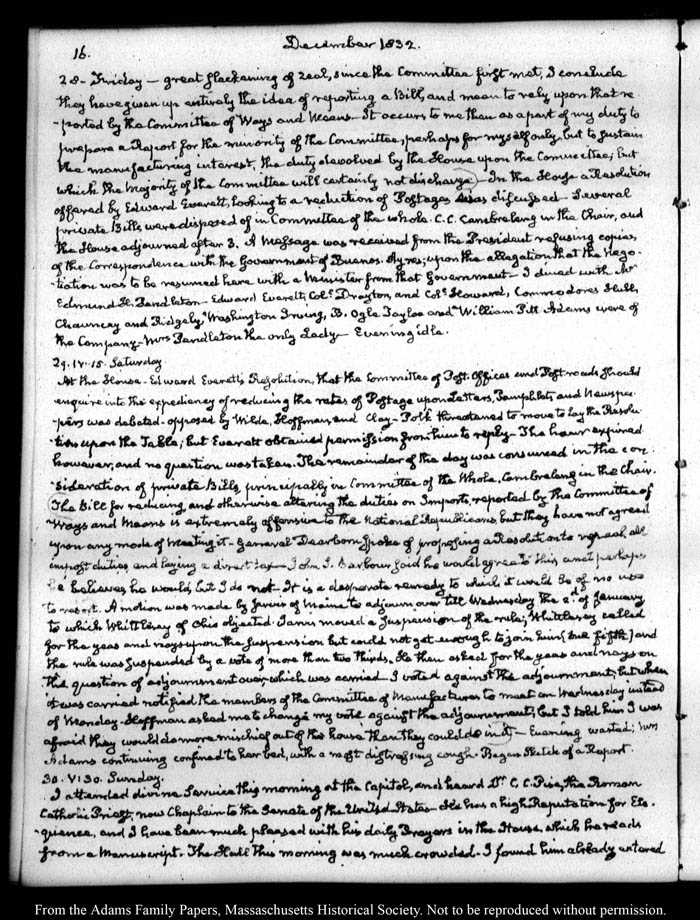 16.
December 1832.
28. Friday — great slackening of zeal, since the Committee first met, I conclude
they have given up entirely the idea of reporting a Bill, and mean to rely upon that re-
-ported by the Committee of Ways and Means. It occurs to me then as a part of my duty to
prepare a Report for the minority of the Committee, perhaps for myself only but to sustain
the manufacturing interest, the duty devolved by the House upon the Committee; but
which the Majority of the Committee will certainly not discharge — In the House a Resolution
offered by Edward Everett, looking to a reduction of Postages was discussed — Several
private Bills were disposed of in Committee of the whole. C. C. Cambreleng in the Chair, and
the House adjourned after 3. A Message was received from the President refusing copies,
of the Correspondence with the Government of Buenos-Ayres; upon the allegation that the Nego-
-tiation was to be resumed here with a Minister from that Government — I dined with Mr
Edmund H. Pendleton — Edward Everett, Coll. Drayton, and Coll. Howard, Commodores Hull,
Chauncey and Ridgely, Washington Irving, B. Ogle Tayloe and William Pitt Adams were of
the Company — Mrs Pendleton the only Lady — Evening idle.
29. IV. 15. Saturday
At the House — Edward Everett's Resolution, that the Committee of Post-Offices and Post-roads should
enquire into the expediency of reducing the rates of Postage upon Letters, Pamphlets, and Newspa-
-pers was debated — opposed by Wilde, Hoffman, and Clay — Polk threatened to move to lay the Resolu-
-tion upon the Table; but Everett obtained permission from him to reply — The hour expired
however, and no question was taken. The remainder of the day was consumed in the con-
-sideration of private Bills, principally in Committee of the Whole, Cambreleng in the Chair.
The Bill for reducing, and otherwise altering the duties on Imports, reported by the Committee of
Ways and Means is extremely offensive to the National Republicans but they have not agreed
upon any mode of meeting it — General Dearborn spoke of proposing a Resolution to repeal all
impost duties, and laying a direct tax — John S. Barbour said he would agree to this and perhaps
he believes he would, but I do not — It is a desperate remedy to which it would be of no use
to resort. A motion was made by Jarvis of Maine to adjourn over till Wednesday the 2d of January
to which Whittlesey of Ohio objected. Jarvis moved a suspension of the rule; Whittlesey called
for the yeas and nays upon the suspension but could not get enough to join him (one fifth) and
the rule was suspended by a vote of more than two thirds. He then asked for the yeas and nays on
the question of adjournment over, which was carried — I voted against the adjournment; but when
it was carried notified the members of the Committee of Manufactures to meet on Wednesday instead
of Monday. Hoffman asked me to change my vote against the adjournment; but I told him I was
afraid they would do more mischief out of this house than they could do in it — Evening wasted; Mrs
Adams continuing confined to her bed, with a most distressing cough. Began Sketch of a Report.
30. V. 30. Sunday.
I attended divine Service this morning at the Capitol, and heard Mr C. C. Pise, the Roman
Catholic Priest, now Chaplain to the Senate of the United States — He has a high Reputation for Elo-
-quence, and I have been much pleased with his daily Prayers in the House, which he reads
from a Manuscript. The Hall this morning was much crowded. I found him already entered
From the Adams Family Papers, Massachusetts Historical Society. Not to be reproduced without permission.